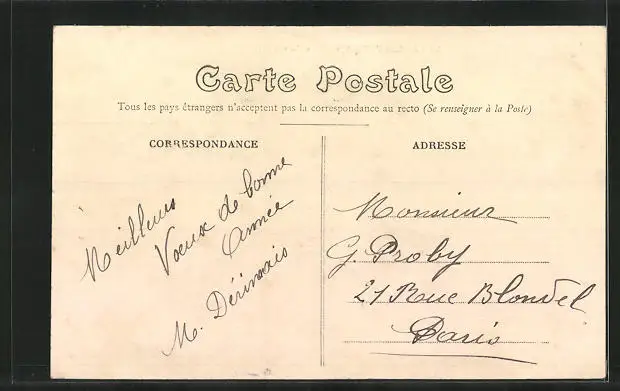 Carte Postale
Tous les pays étrangers n'acceptent pas la correspondance au recto (Se renseigner à la Poste)
CORRESPONDANCE
Meilleurs
Voeux de bonne
Année
M. Dérimais
ADRESSE
Monsieur
G. Proby
21 Rue Blondel
Paris